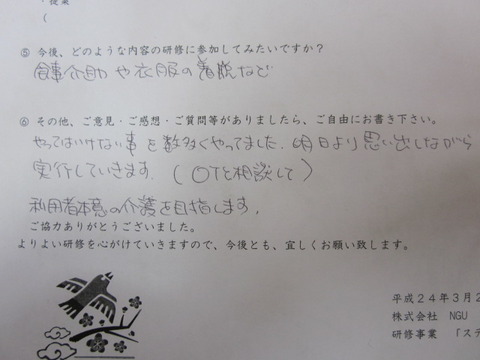 ・提案
(
⑤ 今後、どのような内容の研修に参加してみたいですか？
食事介助や衣服の着脱など
⑥ その他、ご意見・ご感想・ご質問等がありましたら、ご自由にお書き下さい。
やってはいけない事を数多くやってました。明日より思い出しながら
実行していきます。(OTと相談して)
利用者本意の介護を目指します。
ご協力ありがとうございました。
よりよい研修を心がけていきますので、今後とも、宜しくお願い致します。
平成２４年３月２
株式会社 NGU
研修事業 「ステ